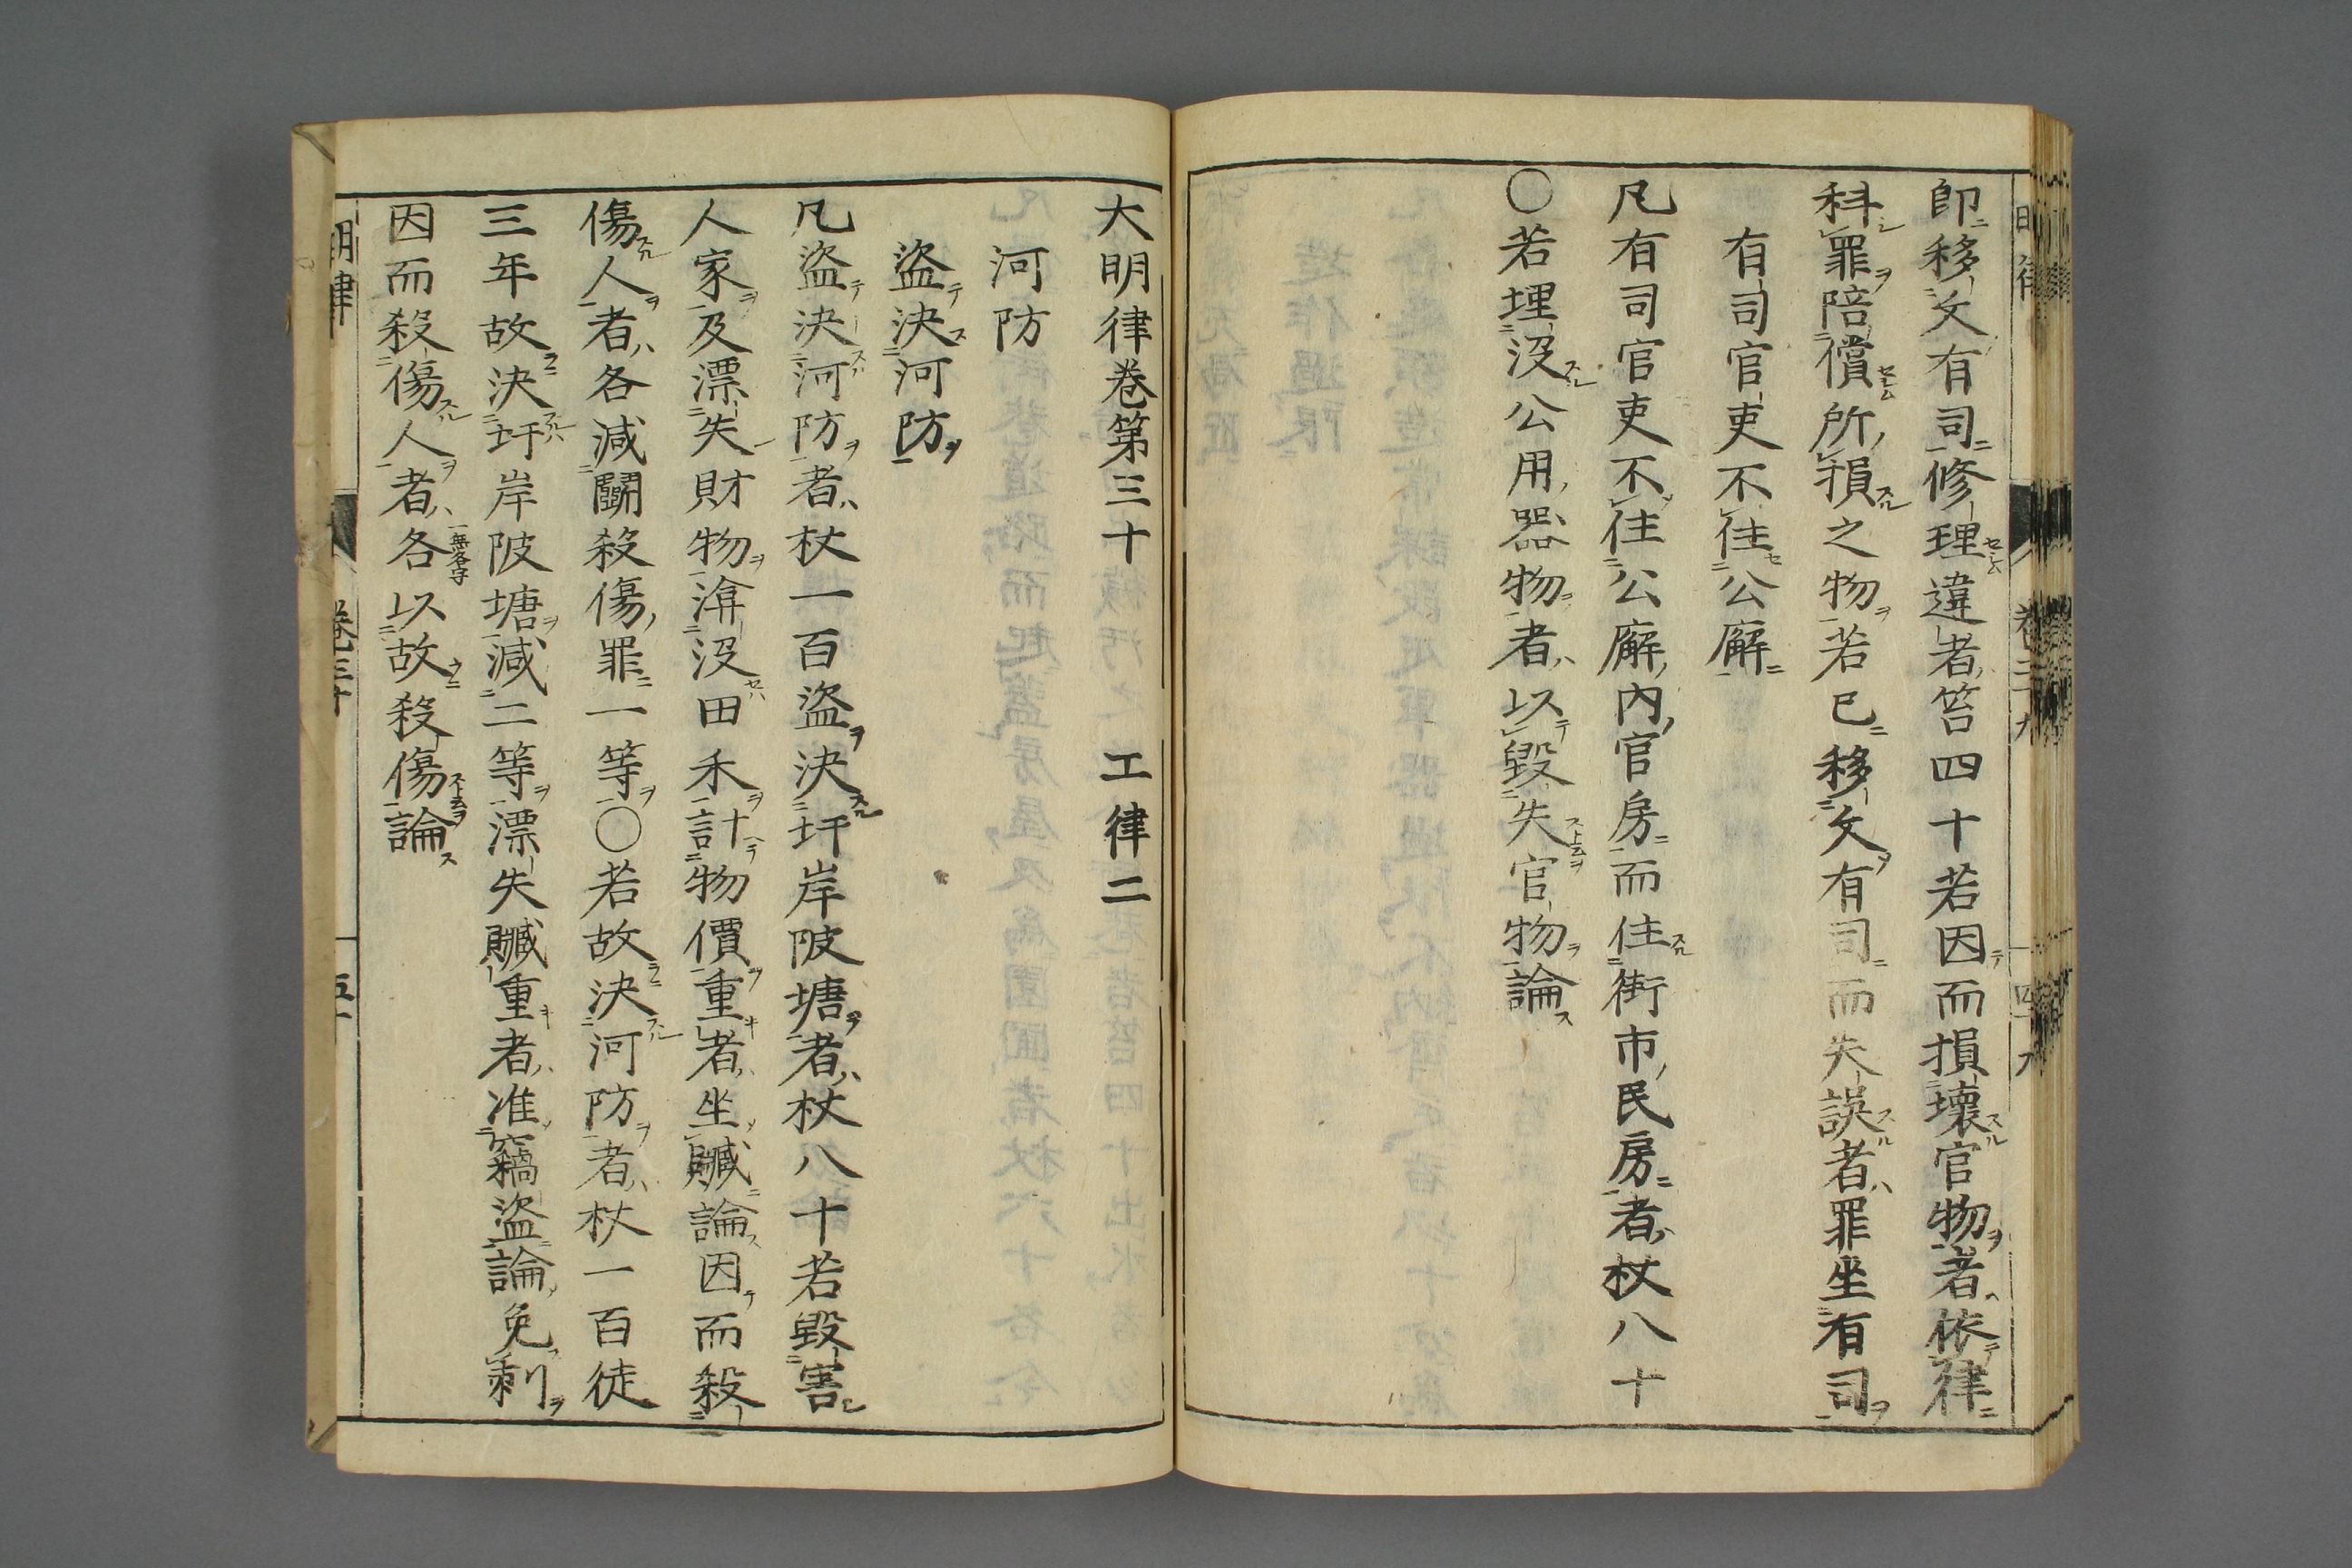 即移文有司修理違者笞四十若因而損壞官物者依律
科罪陪償所損之物若已移文有司而失誤者罪坐有司
有司官吏不住公廨
凡有司官吏不住公廨內官房而住街市民房者杖八十
〇若埋沒公用器物者以毀失官物論
大明律卷第三十 工律二
河防
盜決河防
凡盜決河防者杖一百盜決圩岸陂塘者杖八十若毀害
人家及漂失財物渰沒田禾計物價重者坐贓論因而殺
傷人者各減鬭殺傷罪一等〇若故決河防者杖一百徒
三年故決圩岸陂塘減二等漂失贓重者准竊盜論免刺
因而殺傷人者各以故殺傷論
一無各字
明律 卷三十 五十